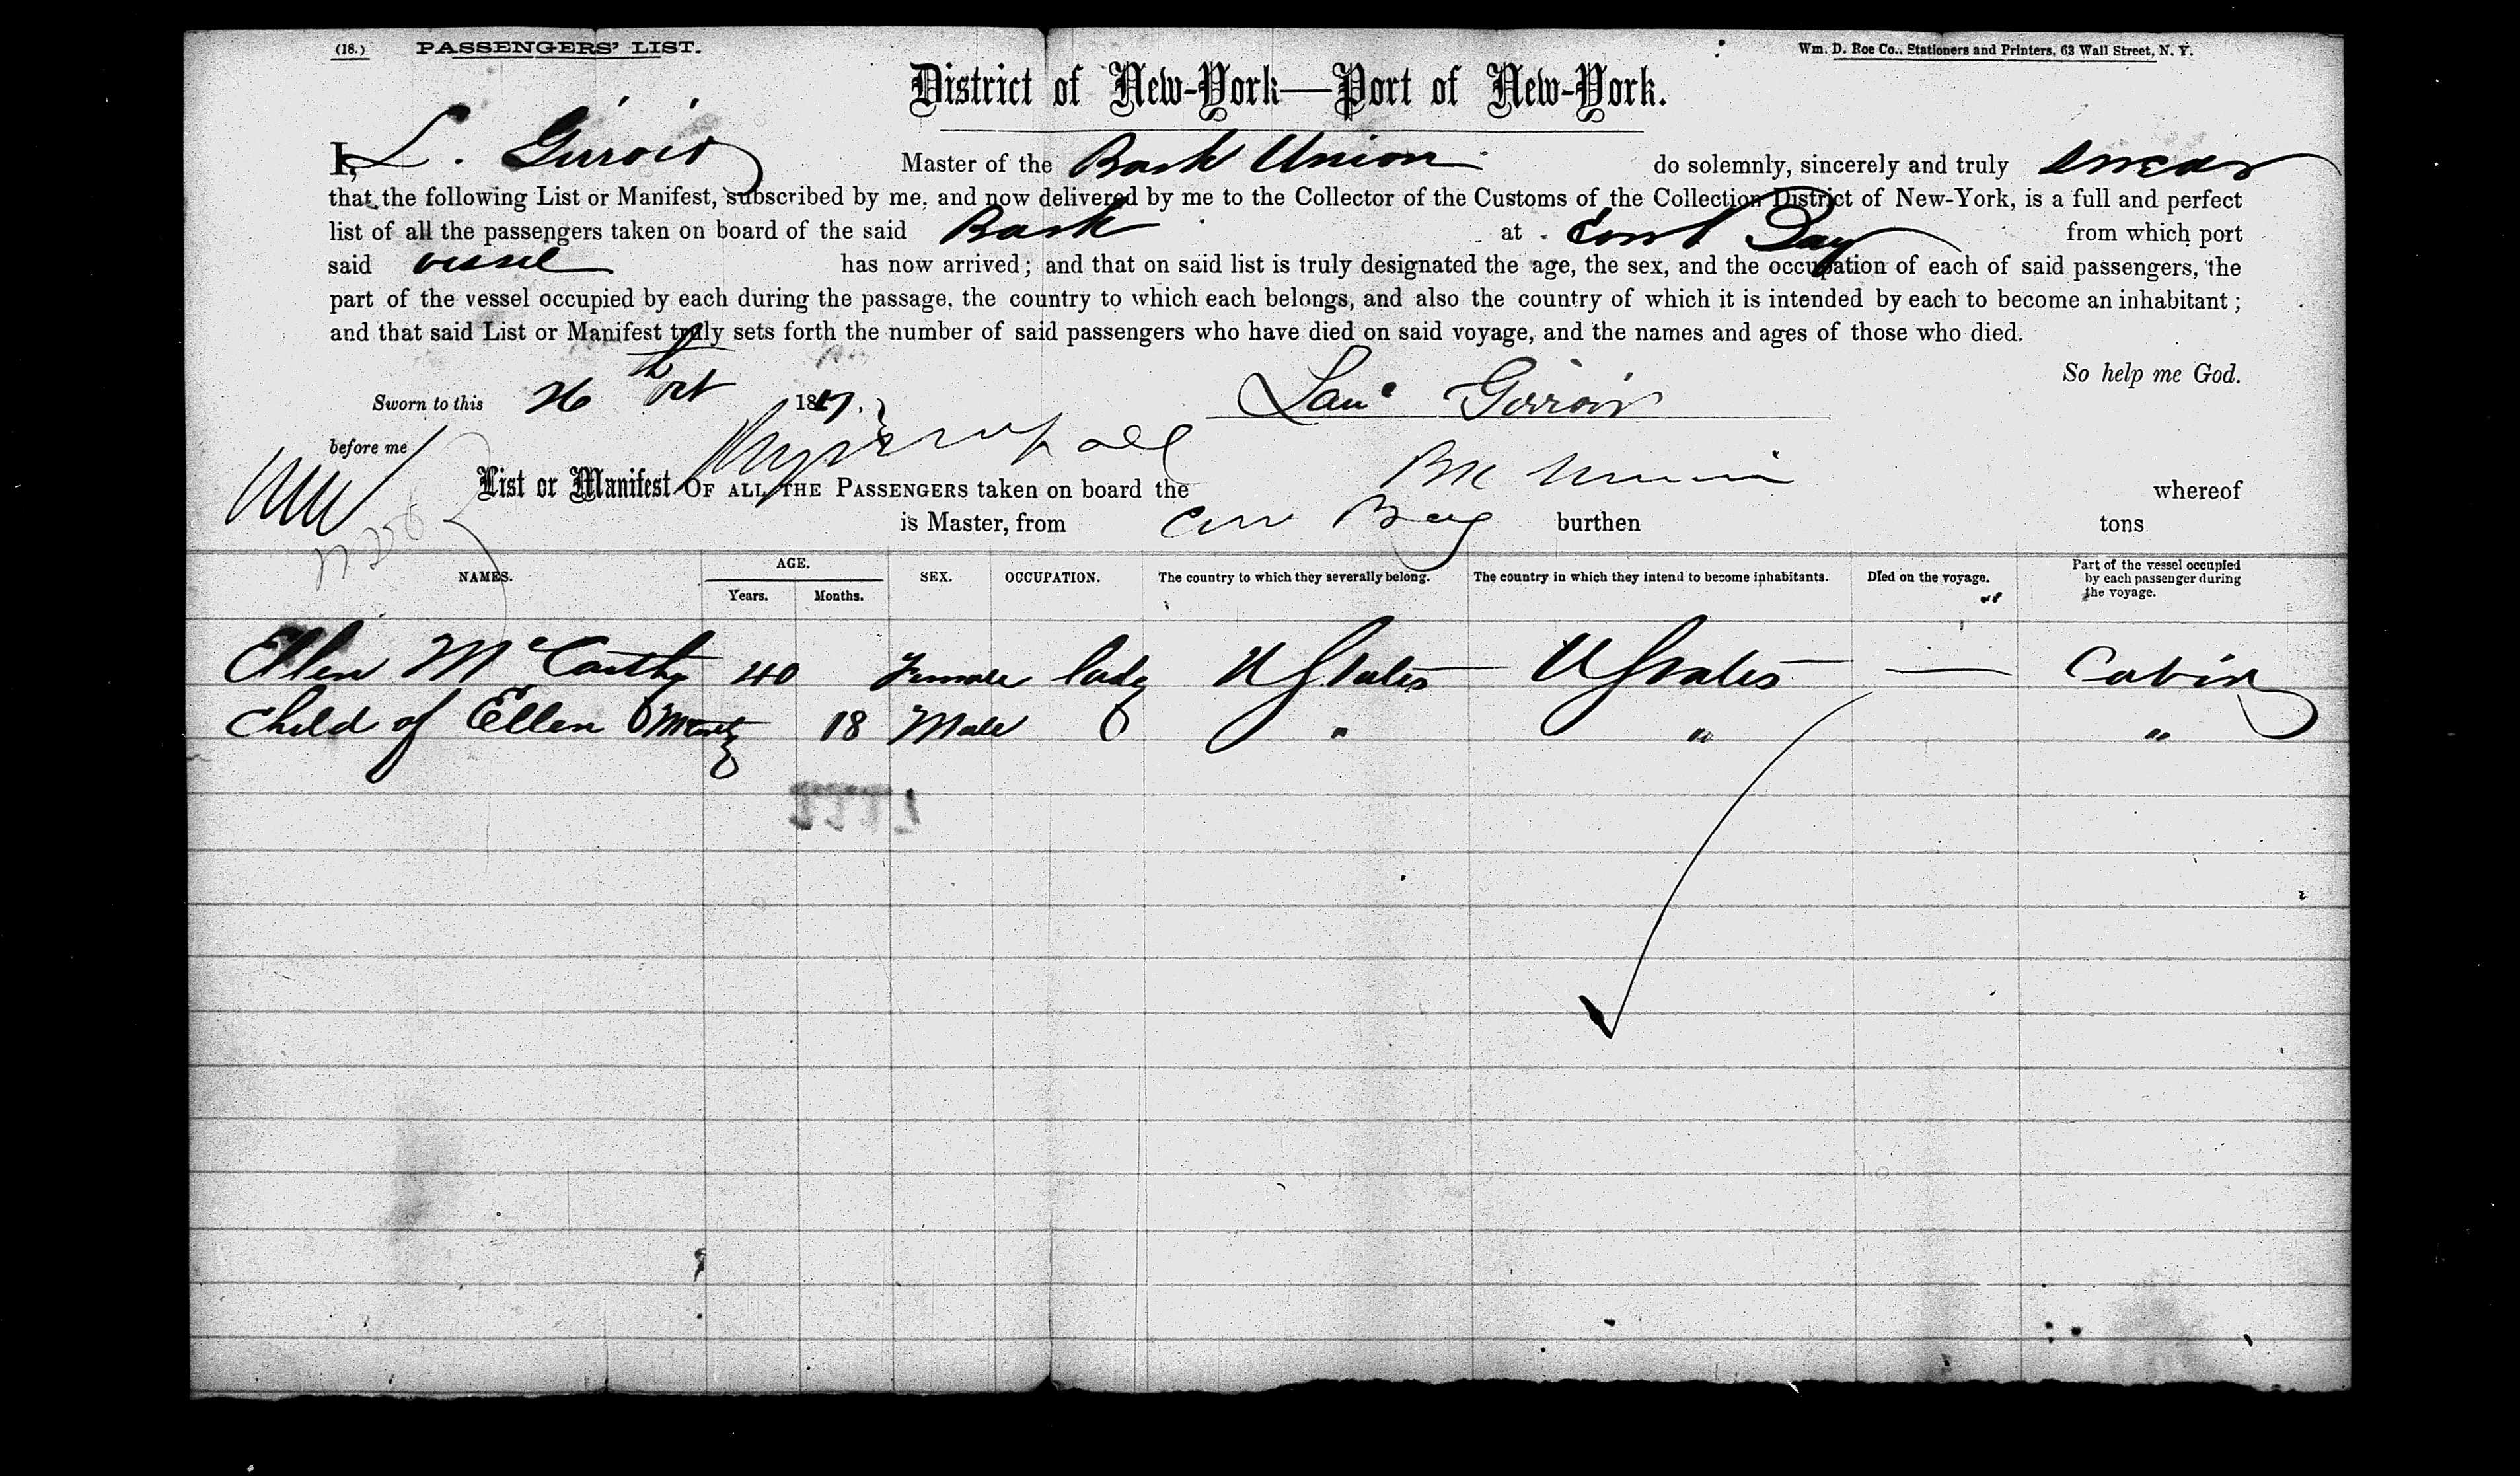 (18.) PASSENGERS' LIST. Wm. D. Roe Co., Stationers and Printers, 63 Wall Street, N. Y.
District of New-York—Port of New-York.
I, L. Girroir Master of the Bark Union do solemnly, sincerely and truly swear
that the following List or Manifest, subscribed by me, and now delivered by me to the Collector of the Customs of the Collection District of New-York, is a full and perfect
list of all the passengers taken on board of the said Bark at Cow Bay from which port
said vessel has now arrived; and that on said list is truly designated the age, the sex, and the occupation of each of said passengers, the
part of the vessel occupied by each during the passage, the country to which each belongs, and also the country of which it is intended by each to become an inhabitant;
and that said List or Manifest truly sets forth the number of said passengers who have died on said voyage, and the names and ages of those who died.
So help me God.
Sworn to this 26th Oct 18 Girroir
before me
List or Manifest OF ALL THE PASSENGERS taken on board the Bk Union whereof
is Master, from Cow Bay burthen tons
NAMES. AGE. Years. Months. SEX. OCCUPATION. The country to which they severally belong. The country in which they intend to become inhabitants. Died on the voyage. Part of the vessel occupied by each passenger during the voyage.
Ellen McCarthy 40 Female lady U States U States — Cabin
Child of Ellen McCarthy 18 Male " " "